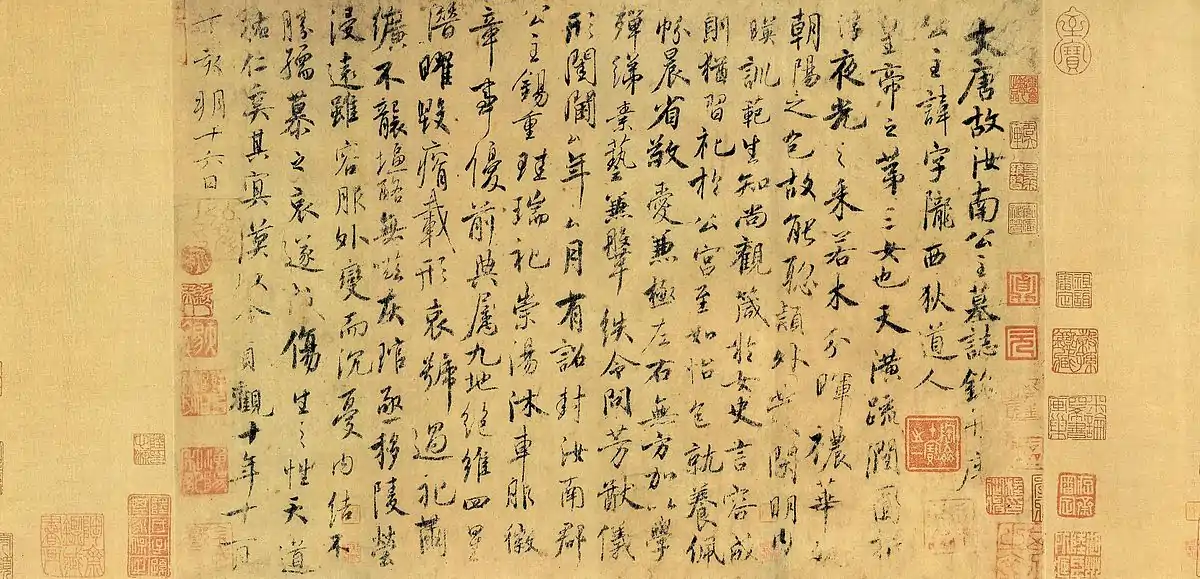 大唐故汝南公主墓誌銘并序
公主諱字隴西狄道人
皇帝之第三女也天潢疏潤圓折
浮夜光之采若木分暉穠華照
朝陽之色故能聰穎外發閑明內
暎訓範生知尚觀箴於女史言容成
則猶習礼於公宮至如怡色就養佩
帉晨省敬愛兼極左右無方加以學
殫綈素藝兼鞶紩令問芳猷儀
形閨閫ム年ム月有詔封汝南郡
公主錫重珪瑞礼崇湯沐車服徽
章事優前典屬九地絕維四星
潛曜毀瘠載形哀號過礼繭
纊不襲塩酪無嗞灰琯亟移陵塋
浸遠雖容服外變而沉憂內結不
勝孺慕之哀遂成傷生之性天道
祐仁奚其冥漠以今貞觀十年十一月
丁亥朔十六日